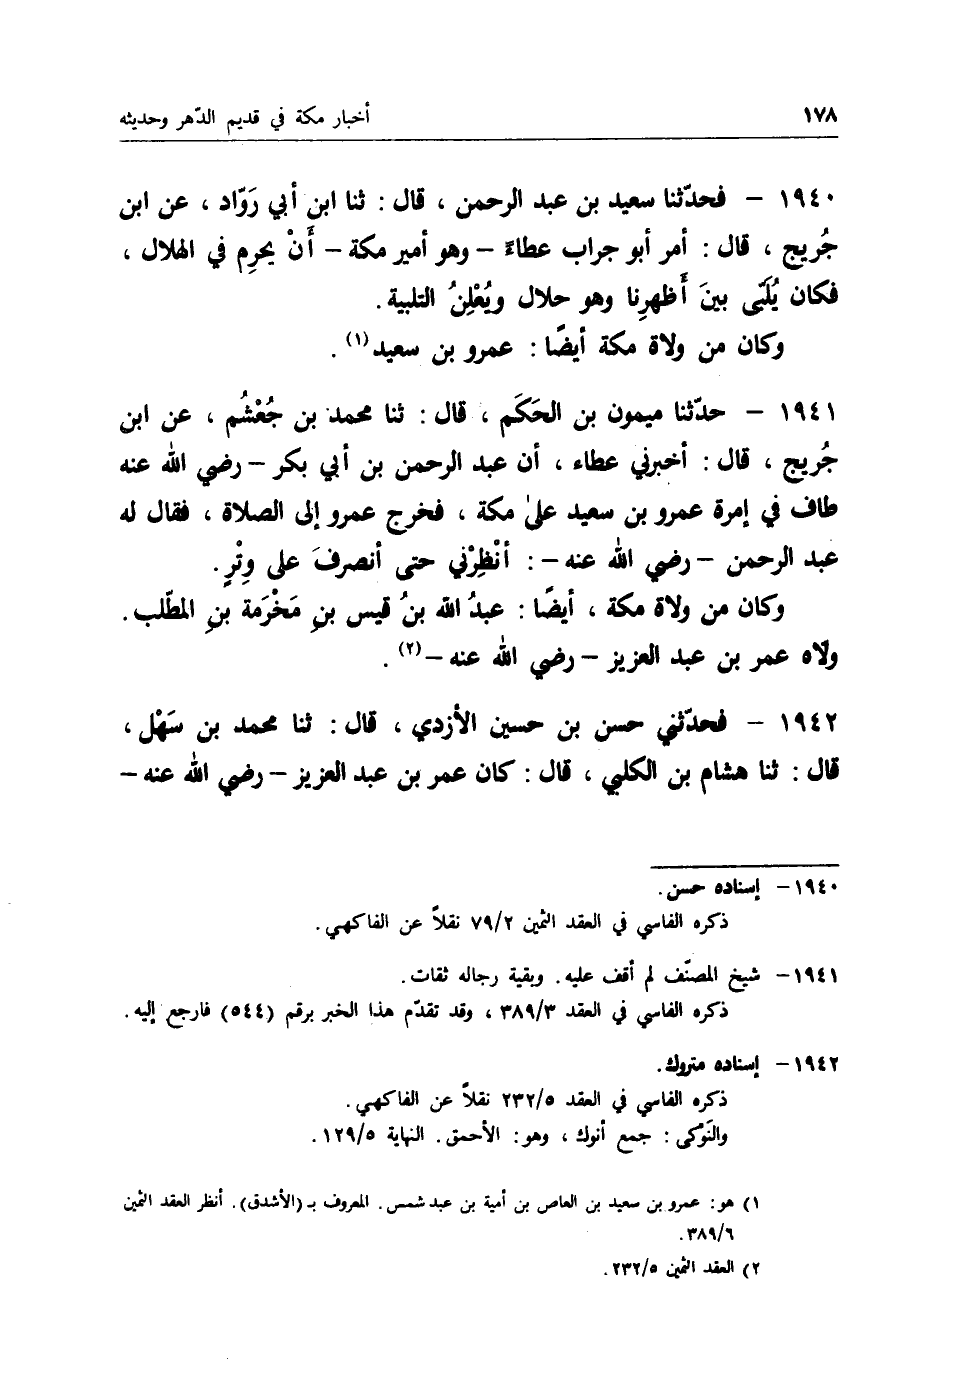 ١٧٨ أخبار مكة في قديم الدّهر وحديثه
١٩٤٠ – فحدّثنا سعيد بن عبد الرحمن ، قال : ثنا ابن أبي رَوّاد ، عن ابن
جُريج ، قال : أمر أبو جراب عطاءً – وهو أمير مكة – أَنْ يحرِم في الهلال ،
فكان يُلَبّى بينَ أَظهرِنا وهو حلال ويُعْلِنُ التلبية .
وكان من ولاة مكة أيضًا : عمرو بن سعيد(١) .
١٩٤١ – حدّثنا ميمون بن الحَكَم ، قال : ثنا محمد بن جُعْشُم ، عن ابن
جُريج ، قال : أخبرني عطاء ، أن عبد الرحمن بن أبي بكر – رضي الله عنه
طاف في إمرة عمرو بن سعيد علىٰ مكة ، فخرج عمرو إلى الصلاة ، فقال له
عبد الرحمن – رضي الله عنه – : أنْظِرْني حتى أنصرفَ على وِتْرٍ .
وكان من ولاة مكة ، أيضًا : عبدُ الله بنُ قيس بنِ مَخْرَمة بنِ المطّلب .
ولّاه عمر بن عبد العزيز – رضي الله عنه –(٢) .
١٩٤٢ – فحدّثني حسن بن حسين الأزدي ، قال : ثنا محمد بن سَهْل ،
قال : ثنا هشام بن الكلبي ، قال : كان عمر بن عبد العزيز – رضي الله عنه –
١٩٤٠ – إسناده حسن .
ذكره الفاسي في العقد الثمين ٧٩/٢ نقلاً عن الفاكهي .
١٩٤١ – شيخ المصنّف لم أقف عليه . وبقية رجاله ثقات .
ذكره الفاسي في العقد ٣٨٩/٣ ، وقد تقدّم هذا الخبر برقم (٥٤٤) فارجع إليه .
١٩٤٢ – إسناده متروك .
ذكره الفاسي في العقد ٢٣٢/٥ نقلاً عن الفاكهي .
والنَوْكى : جمع أنوك ، وهو : الأحمق . النهاية ١٢٩/٥ .
١) هو : عمرو بن سعيد بن العاص بن أمية بن عبد شمس . المعروف بـ (الأشدق) . أنظر العقد الثمين
٣٨٩/٦ .
٢) العقد الثمين ٢٣٢/٥ .